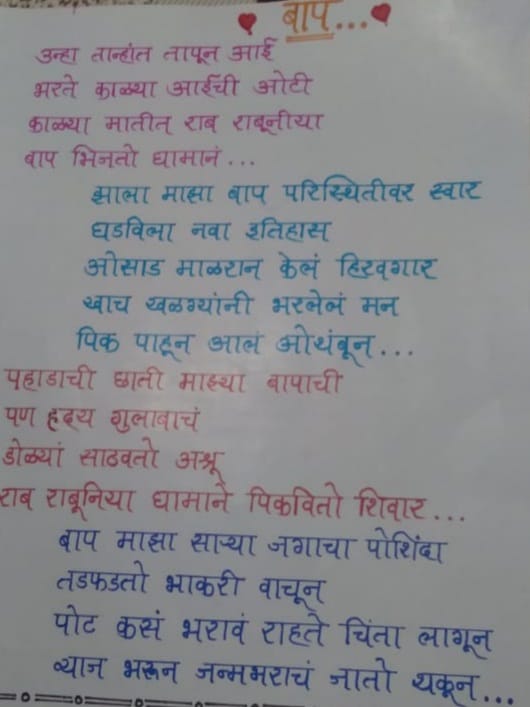 बाप...
उन्हा तान्हांत तापून आई
भरते काळ्या आईची ओटी
काळ्या मातीत राब राबूनीया
बाप भिजतो घामानं...
झाला माझा बाप परिस्थितीवर स्वार
घडविला नवा इतिहास
ओसाड माळरान केलं हिरवगार
खाच खळग्यांनी भरलेलं मन
पिक पाहून आलं ओथंबून...
पहाडाची छाती माझ्या बापाची
पण हृदय गुलाबाचं
डोळ्यां साठवतो अश्रू
राब राबूनिया घामाने पिकवितो शिवार...
बाप माझा साऱ्या जगाचा पोशिंदा
तडफडतो भाकरी वाचून
पोट कसं भरावं राहते चिंता लागून
व्यान भरून जन्मभराचं जातो थकून...